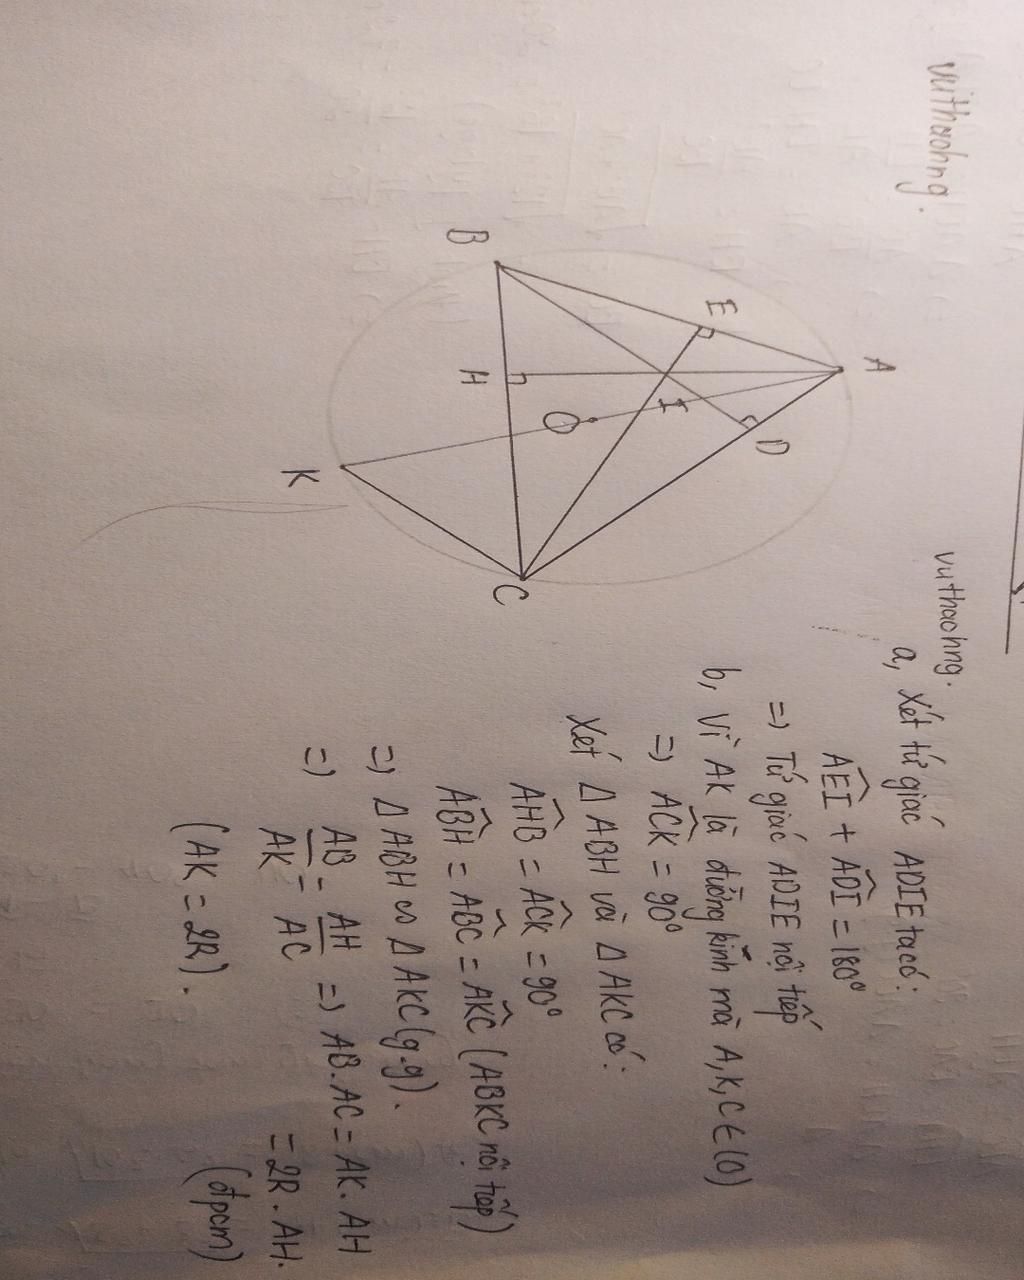 vuthaohng.
A
E
D
I
B
H
O
C
K
vuthaohng.
a, Xét tứ giác ADIE ta có:
AEI + ADI = 180°
=) Tứ giác ADIE nội tiếp
b, Vì AK là đường kính mà A, K, C ∈ (O)
=) ACK = 90°
Xét Δ ABH và Δ AKC có:
AHB = ACK = 90°
ABH = ABC = AKC (ABKC nội tiếp)
=) Δ ABH ∽ Δ AKC (g.g).
=) AB/AK = AH/AC =) AB.AC = AK.AH
= 2R.AH.
(AK = 2R).
(đpcm)